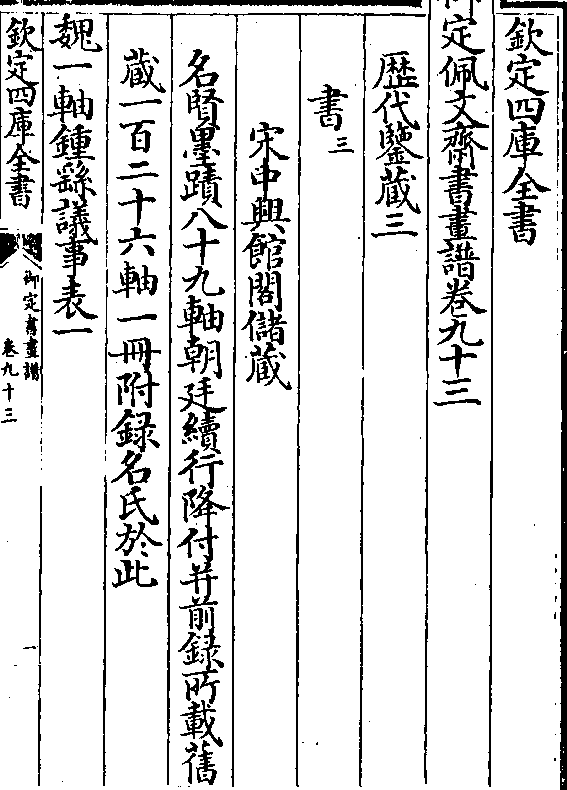 欽定四庫全書
御定佩文齋書畫譜卷九十三
歷代鑒藏三
書三
宋中興館閣儲藏
名賢墨蹟八十九軸朝廷續行降付并前録所載舊
藏一百二十六軸一冊附録名氏於此
魏一軸鍾繇議事表一
欽定四庫全書
御定書畫譜
卷九十三
一